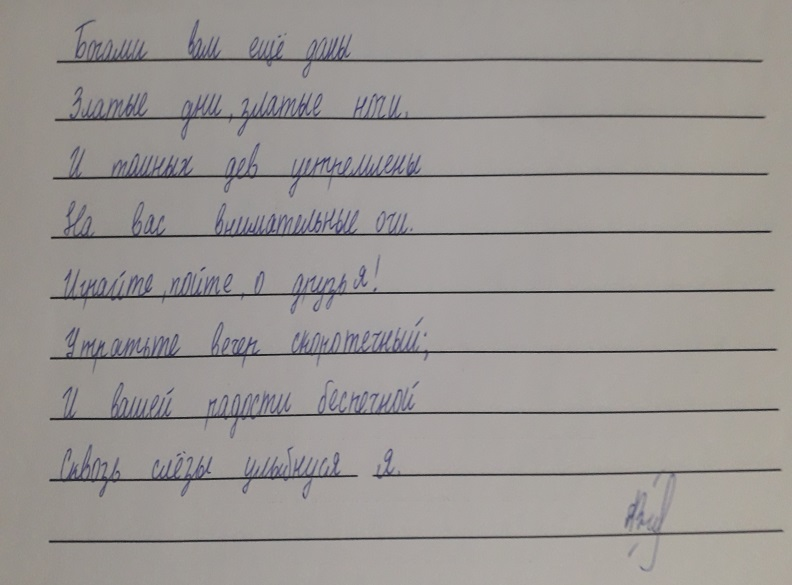 Богами вам ещё даны
Златые дни, златые ночи,
И томных дев устремлены
На вас внимательные очи.
Играйте, пойте, о друзья!
Утратьте вечер скоротечный;
И вашей радости беспечной
Сквозь слёзы улыбнуся я.